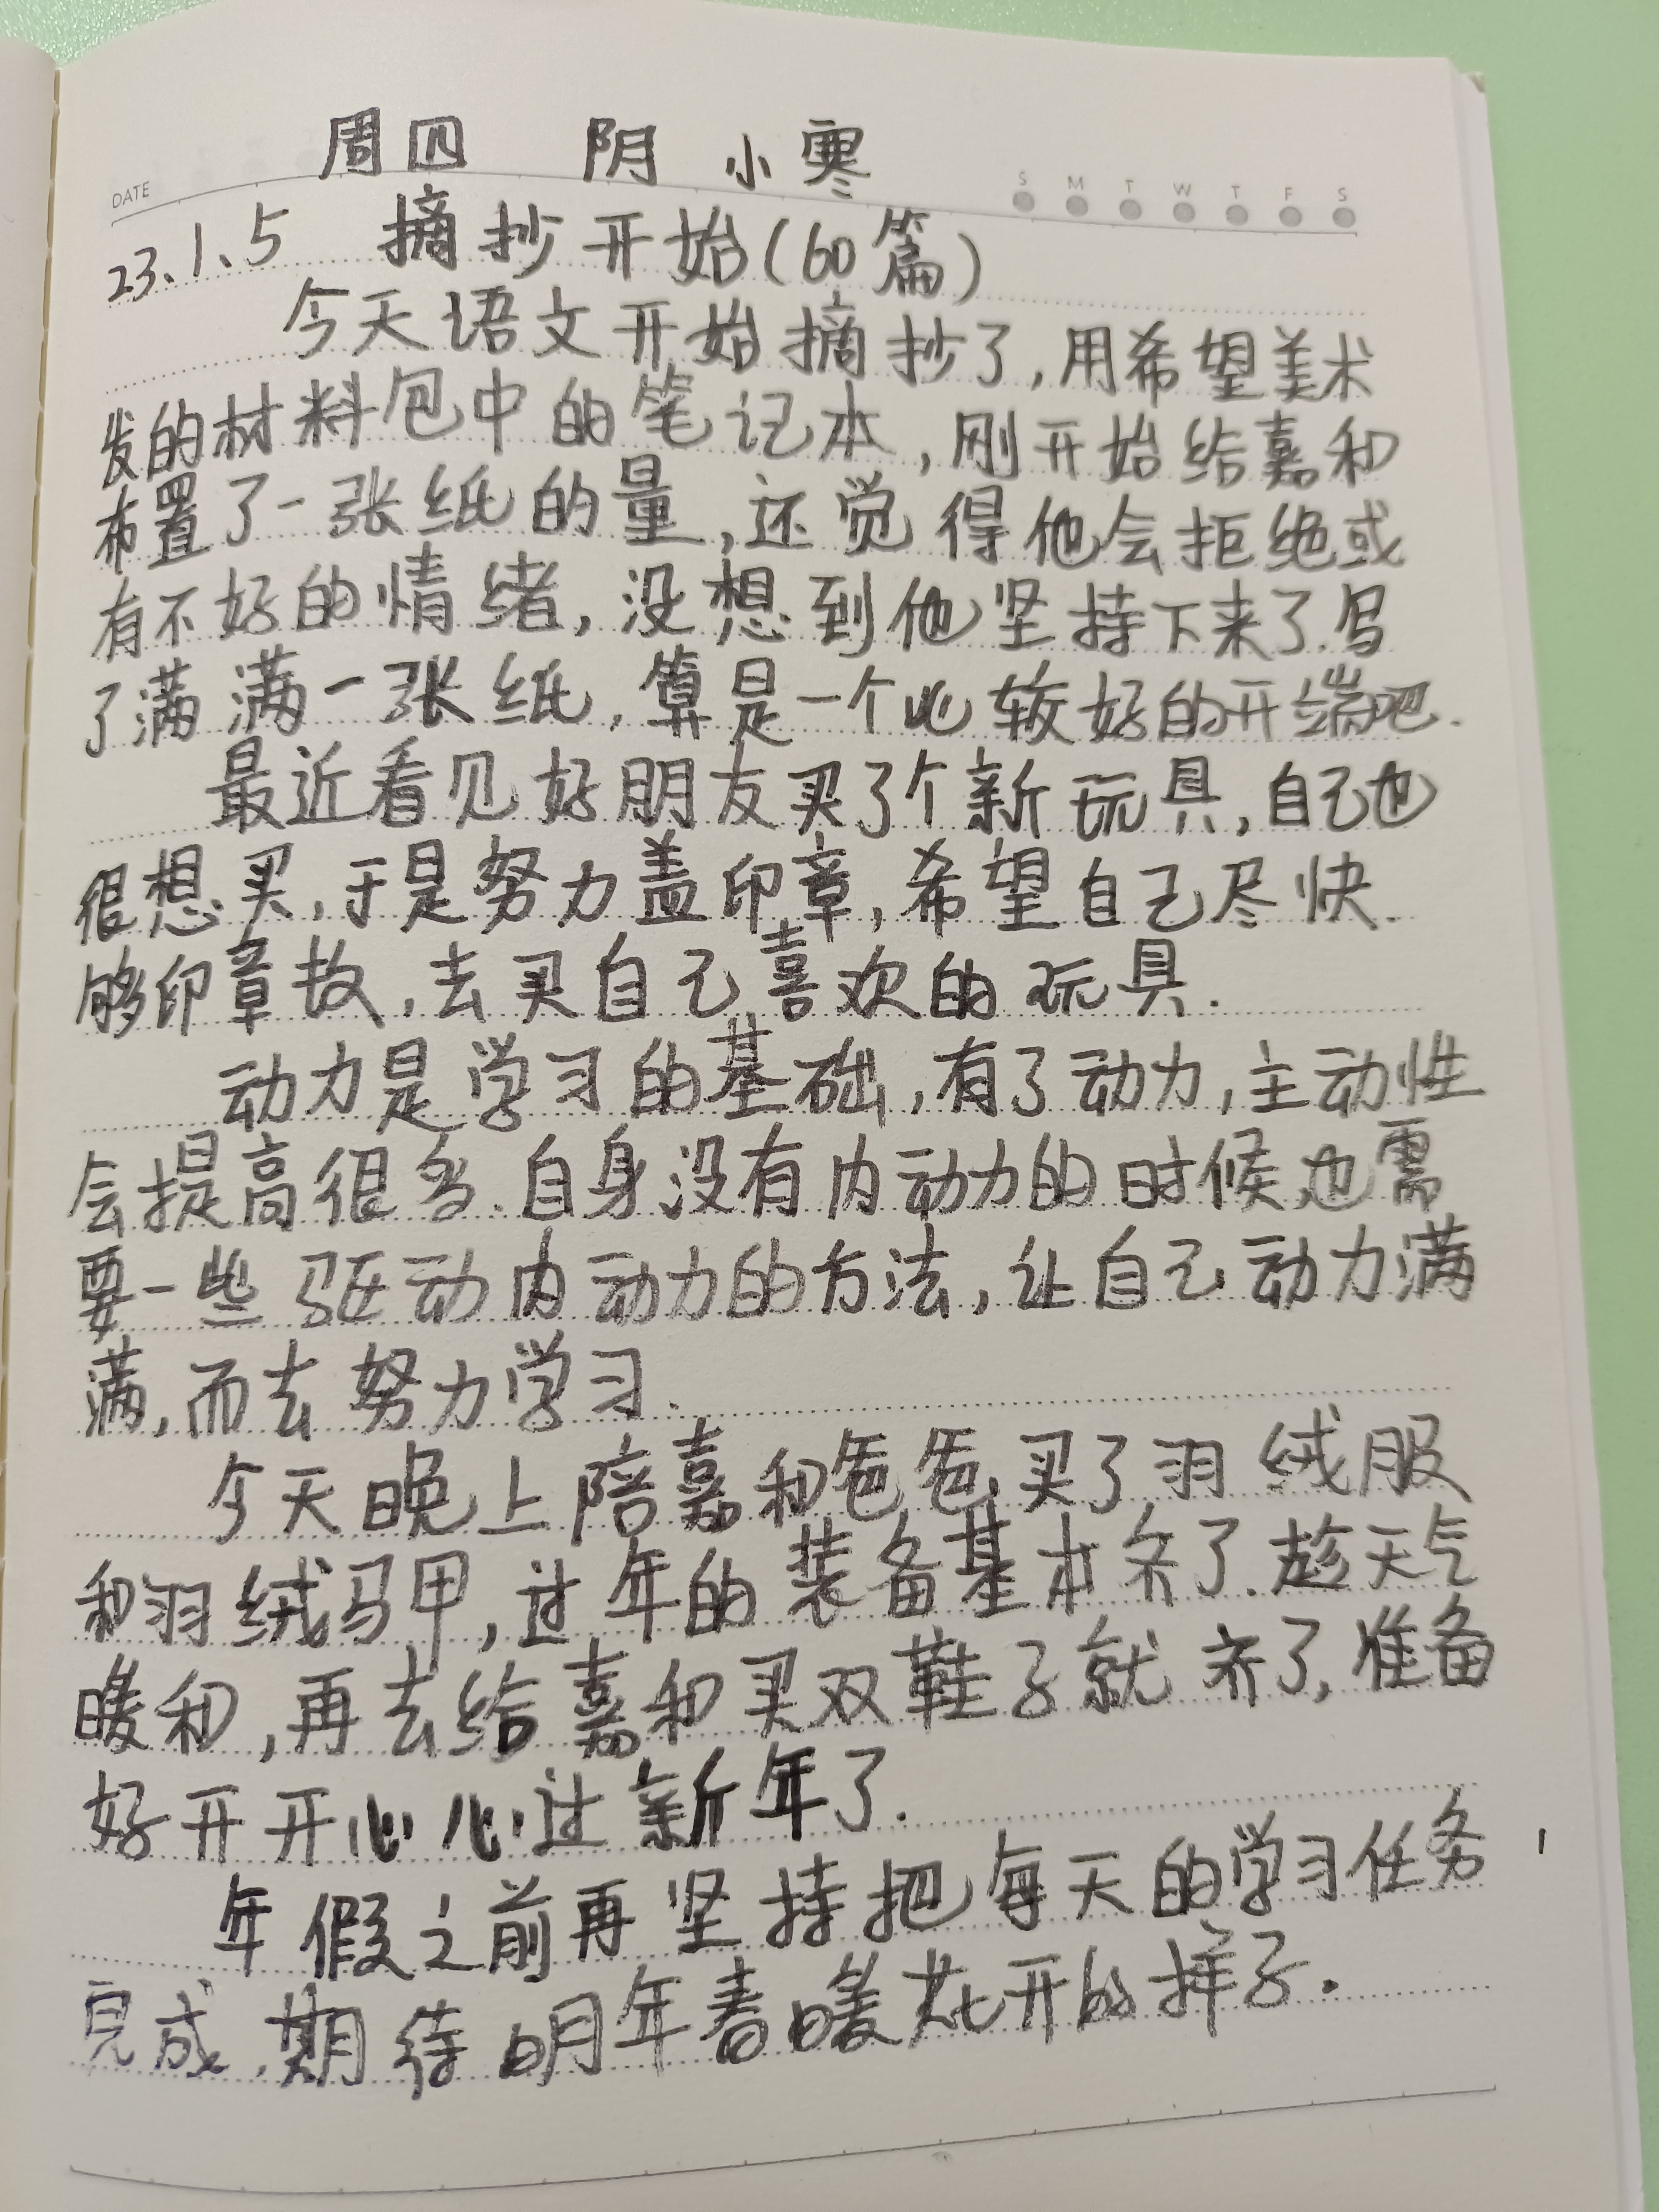 周四 阴 小寒
DATE S M T W T F S
23、1、5 摘抄开始(60篇)
今天语文开始摘抄了,用希望美术
发的材料包中的笔记本,刚开始给嘉和
布置了一张纸的量,还觉得他会拒绝或
有不好的情绪,没想到他坚持下来了.写
了满满一张纸,算是一个比较好的开端吧.
最近看见好朋友买了个新玩具,自己也
很想买,于是努力盖印章,希望自己尽快
够印章数,去买自己喜欢的玩具.
动力是学习的基础,有了动力,主动性
会提高很多.自身没有内动力的时候,也需
要一些驱动内动力的方法,让自己动力满
满,而去努力学习.
今天晚上陪嘉和爸爸,买了羽绒服
和羽绒马甲,过年的装备基本齐了.趁天气
暖和,再去给嘉和买双鞋子就齐了,准备
好开开心心过新年了.
年假之前再坚持把每天的学习任务
完成,期待明年春暖花开的样子.